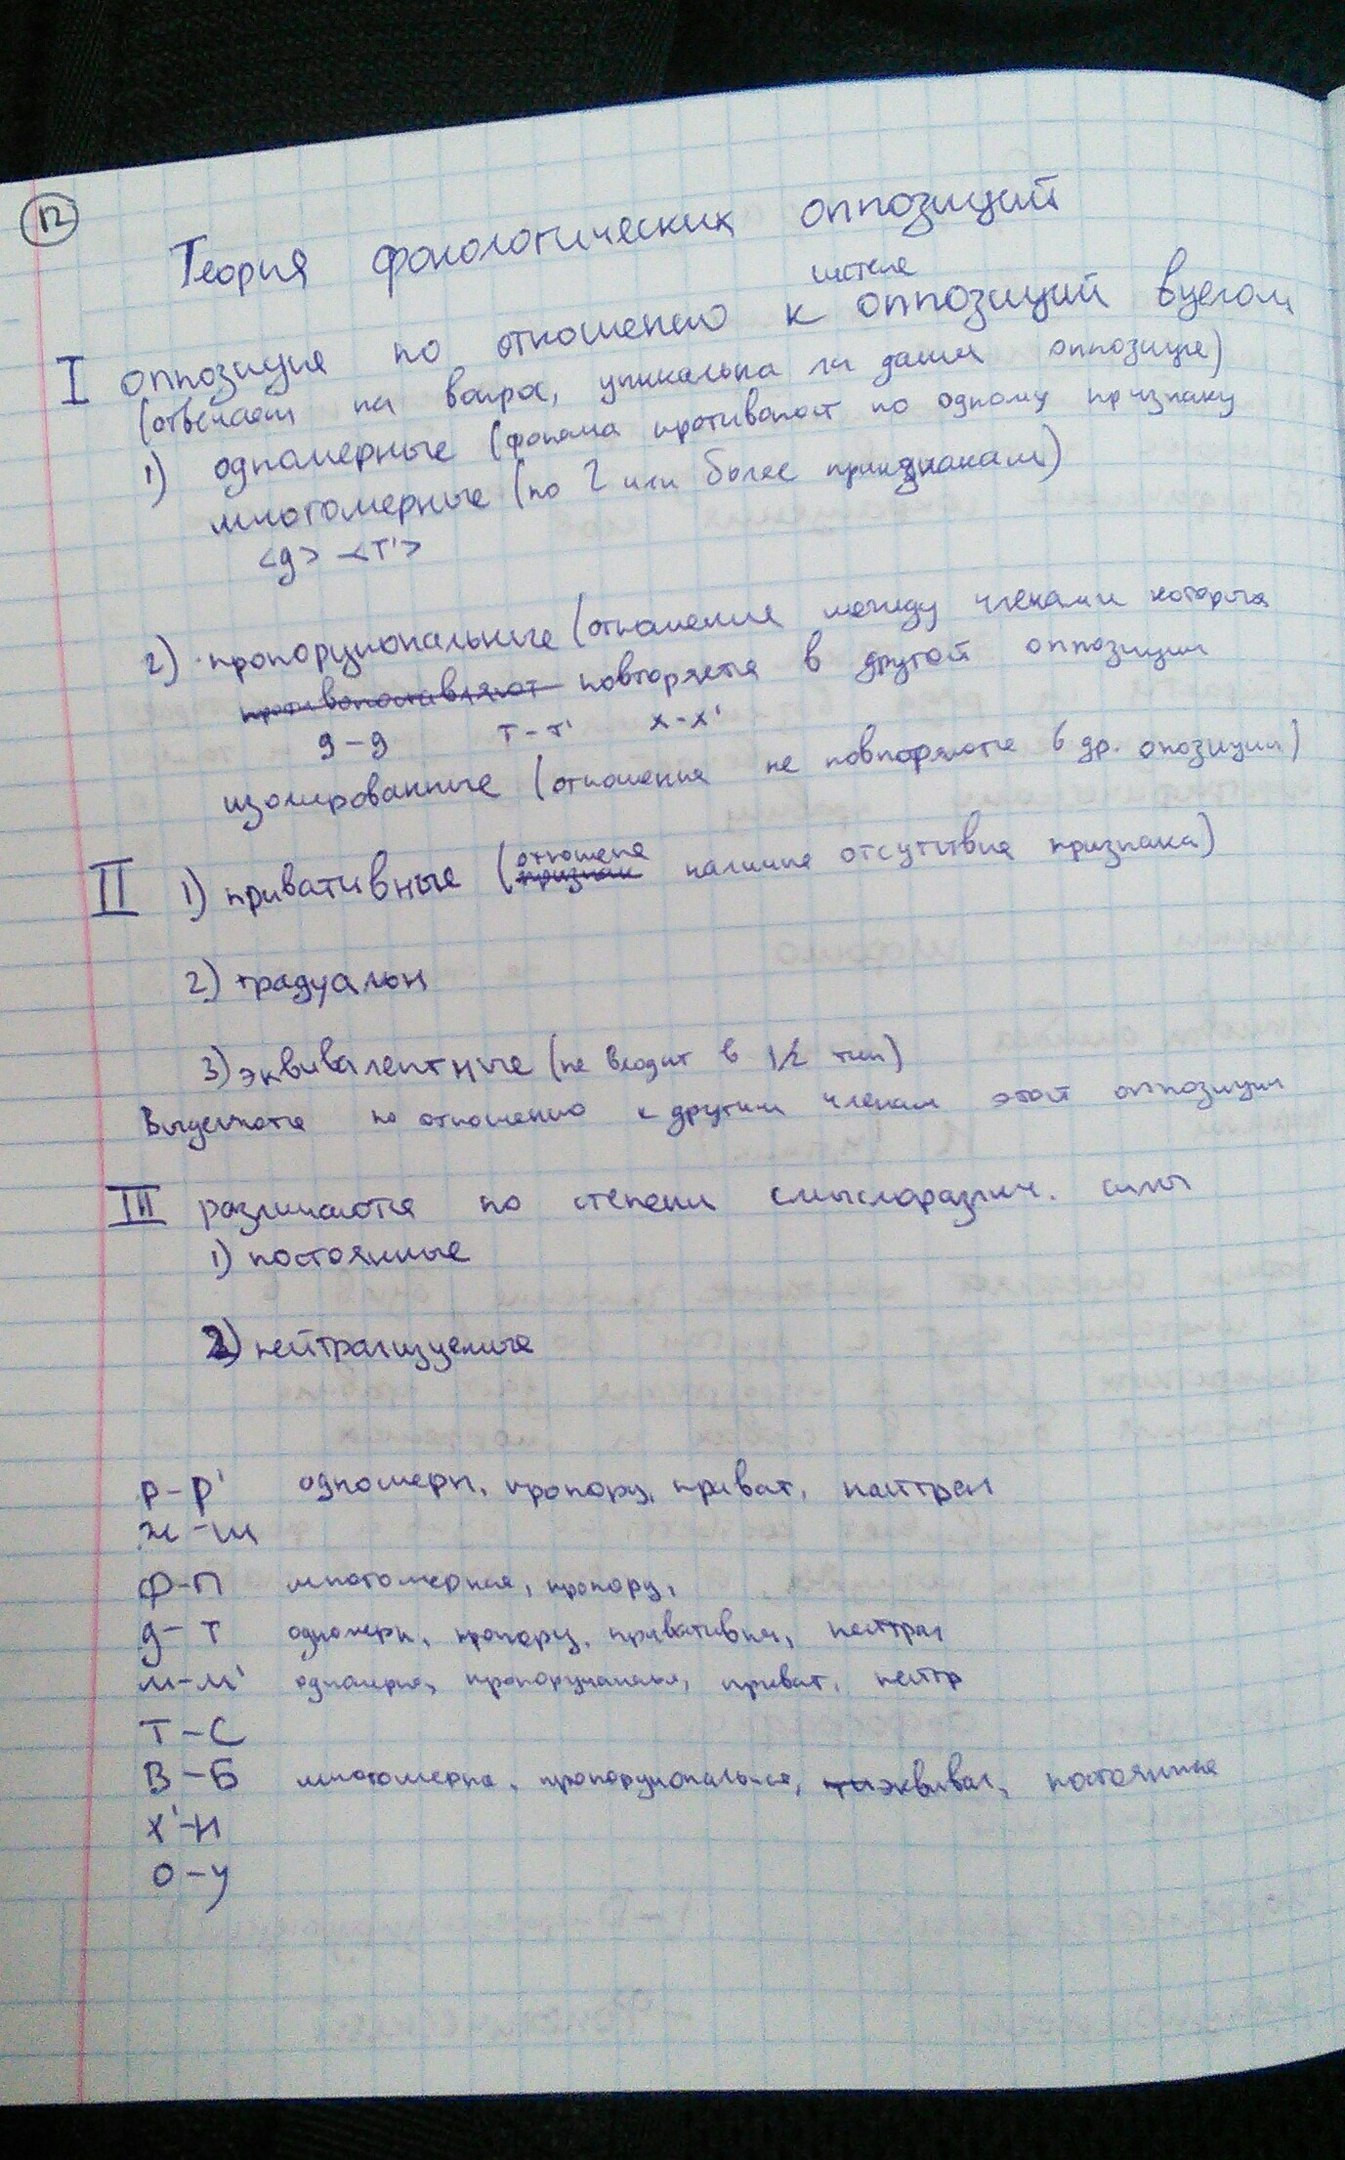 12
Теория фонологических оппозиций
системе
I оппозиция по отношению к оппозиций вцелом
(отвечает на вопрос, уникальна ли данная оппозиция)
1) одномерные (фонема противопост по одному признаку
многомерные (по 2 или более признакам)
<д> - <т'>
2) пропорциональные (отношения между членами которых
противопоставляют повторяется в другой оппозиции
д-д т-т' х-х'
изолированные (отношения не повторяются в др. опозиции)
отношение
II 1) привативные (признак наличие отсутствие признака)
2) градуальн
3) эквивалентные (не входит в 1/2 тип)
Выделяются по отношению к другим членам этой оппозиции
III различаются по степени смыслоразлич. силы
1) постоянные
2) нейтрализуемые
р-р' одномерн, пропорц, приват, нейтрал
ж-ш
ф-п многомерная, пропорц,
д-т одномерн, пропорц, привативная, нейтрал
м-м' одномерная, пропорциональн, приват, нейтр
Т-С
В-Б многомерна, пропорциональная, эквивал, постоянная
х'-н
о-у